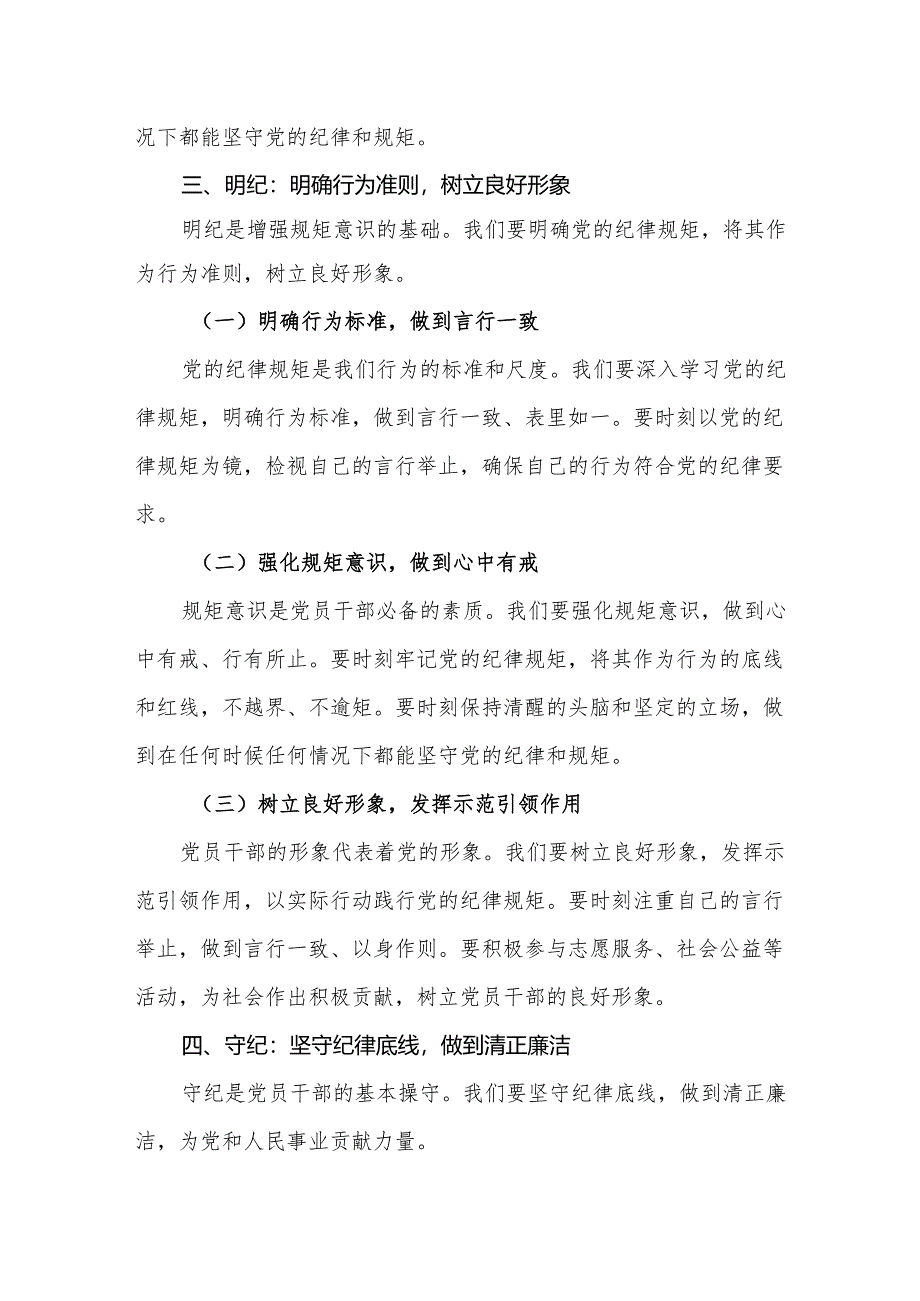 况下都能坚守党的纪律和规矩。
三、明纪：明确行为准则，树立良好形象
明纪是增强规矩意识的基础。我们要明确党的纪律规矩，将其作
为行为准则，树立良好形象。
（一）明确行为标准，做到言行一致
党的纪律规矩是我们行为的标准和尺度。我们要深入学习党的纪
律规矩，明确行为标准，做到言行一致、表里如一。要时刻以党的纪
律规矩为镜，检视自己的言行举止，确保自己的行为符合党的纪律要
求。
（二）强化规矩意识，做到心中有戒
规矩意识是党员干部必备的素质。我们要强化规矩意识，做到心
中有戒、行有所止。要时刻牢记党的纪律规矩，将其作为行为的底线
和红线，不越界、不逾矩。要时刻保持清醒的头脑和坚定的立场，做
到在任何时候任何情况下都能坚守党的纪律和规矩。
（三）树立良好形象，发挥示范引领作用
党员干部的形象代表着党的形象。我们要树立良好形象，发挥示
范引领作用，以实际行动践行党的纪律规矩。要时刻注重自己的言行
举止，做到言行一致、以身作则。要积极参与志愿服务、社会公益等
活动，为社会作出积极贡献，树立党员干部的良好形象。
四、守纪：坚守纪律底线，做到清正廉洁
守纪是党员干部的基本操守。我们要坚守纪律底线，做到清正廉
洁，为党和人民事业贡献力量。